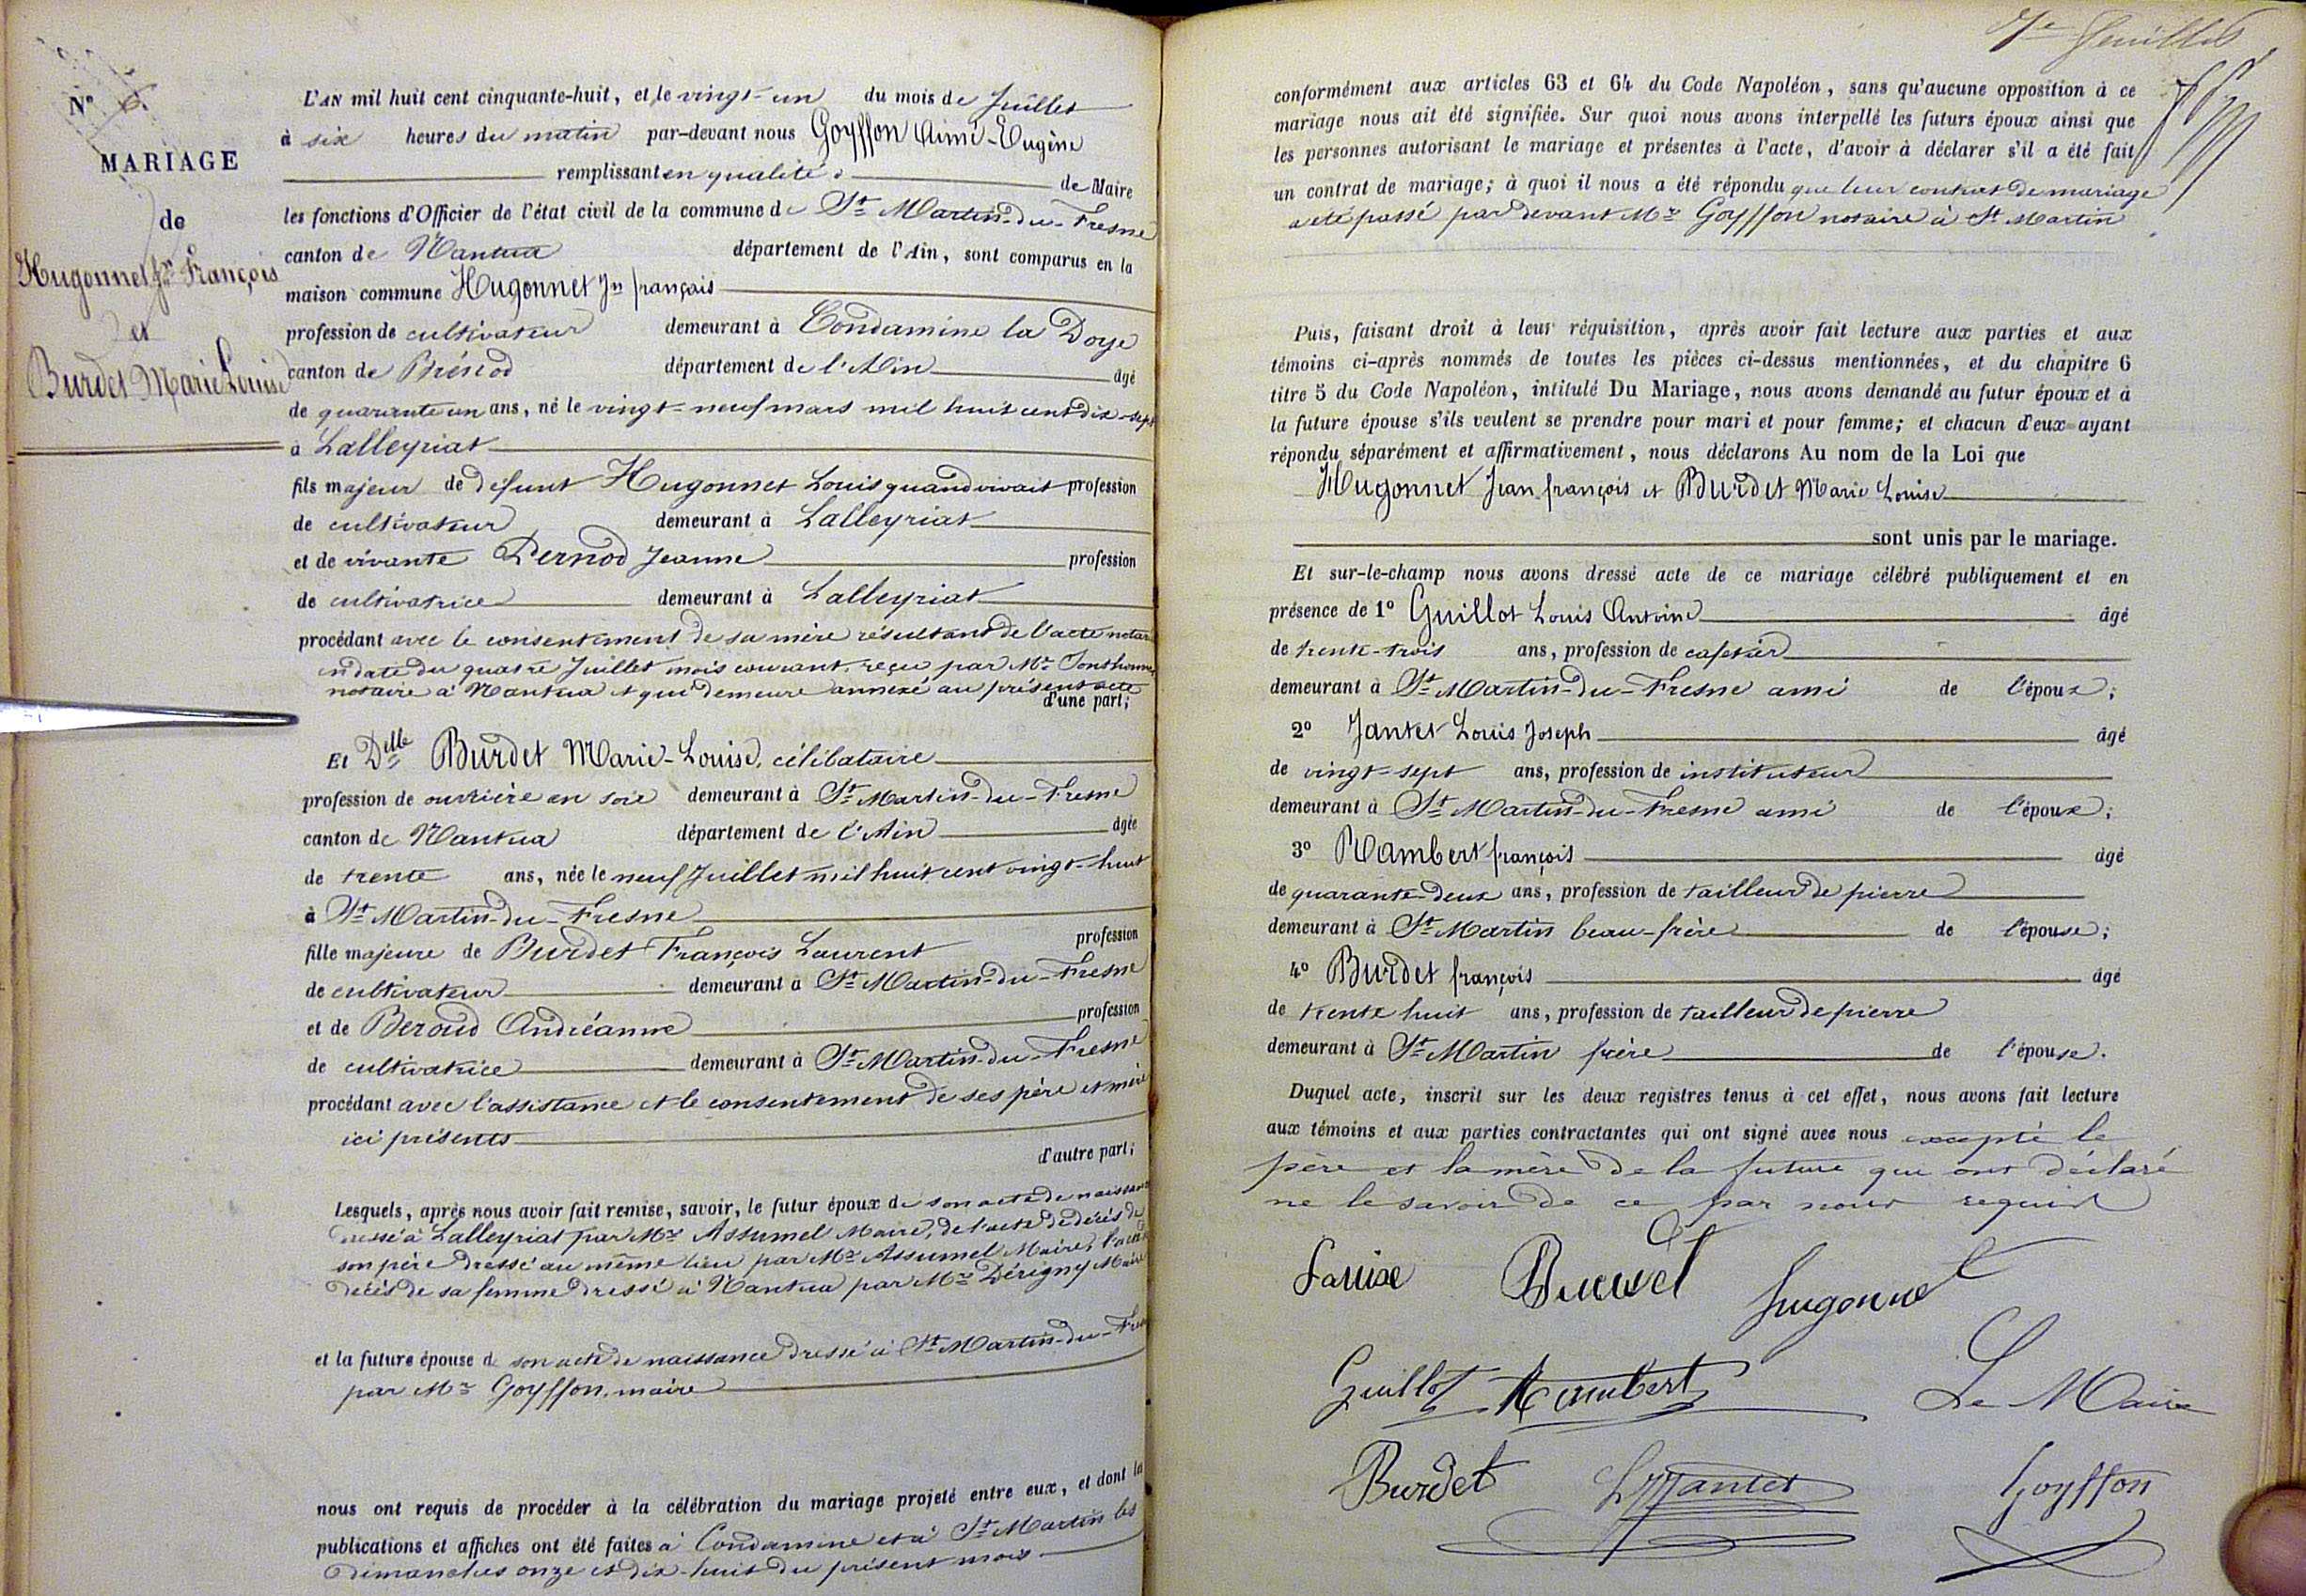 N° 6.
MARIAGE
de
Hugonnet Jn François
et
Burdet Marie Louise
L'AN mil huit cent cinquante-huit, et le vingt-un du mois de Juillet
à six heures du matin par-devant nous Goyffon Aimé-Eugène
remplissant en qualité de Maire
les fonctions d'Officier de l'état civil de la commune de St Martin-du-Fresne
canton de Nantua département de l'Ain, sont comparus en la
maison commune Hugonnet Jn françois
profession de cultivateur demeurant à Condamine la Doye
canton de Brénod département de l'Ain âgé
de quarante un ans, né le vingt-neuf mars mil huit cent dix-sept
à Lalleyriat
fils majeur de défunt Hugonnet Louis quand vivait profession
de cultivateur demeurant à Lalleyriat
et de vivante Pernod Jeanne profession
de cultivatrice demeurant à Lalleyriat
procédant avec le consentement de sa mère résultant de l'acte notar
en date du quatre Juillet mois courant, reçu par Mr
notaire à Nantua et qui demeure annexé au présent acte
d'une part;
Et Delle Burdet Marie-Louise, célibataire
profession de ouvrière en soie demeurant à St Martin-du-Fresne
canton de Nantua département de l'Ain âgée
de trente ans, née le neuf Juillet mil huit cent vingt-huit
à St Martin-du-Fresne
fille majeure de Burdet François Laurent profession
de cultivateur demeurant à St Martin-du-Fresne
et de Beroud Andréanne profession
de cultivatrice demeurant à St Martin-du-Fresne
procédant avec l'assistance et le consentement de ses père et mère
ici présents
d'autre part;
Lesquels, après nous avoir fait remise, savoir, le futur époux de son acte de naissance
dressé à Lalleyriat par Mr Assumel Maire, de l'acte de décès de
son père dressé au même lieu par Mr Assumel Maire, l'acte
décès de sa femme dressé à Nantua par Mr Dérigny Maire
et la future épouse de son acte de naissance dressé à St Martin-du-Fresne
par Mr Goyffon, maire
nous ont requis de procéder à la célébration du mariage projeté entre eux, et dont les
publications et affiches ont été faites à Condamine et à St Martin les
Dimanches onze et dix-huit du présent mois
conformément aux articles 63 et 64 du Code Napoléon, sans qu'aucune opposition à ce
mariage nous ait été signifiée. Sur quoi nous avons interpellé les futurs époux ainsi que
les personnes autorisant le mariage et présentes à l'acte, d'avoir à déclarer s'il a été fait
un contrat de mariage; à quoi il nous a été répondu que leur contrat de mariage
a été passé par devant Mr Goyffon notaire à St Martin
Puis, faisant droit à leur réquisition, après avoir fait lecture aux parties et aux
témoins ci-après nommés de toutes les pièces ci-dessus mentionnées, et du chapitre 6
titre 5 du Code Napoléon, intitulé Du Mariage, nous avons demandé au futur époux et à
la future épouse s'ils veulent se prendre pour mari et pour femme; et chacun d'eux ayant
répondu séparément et affirmativement, nous déclarons Au nom de la Loi que
Hugonnet Jean françois et Burdet Marie Louise
sont unis par le mariage.
Et sur-le-champ nous avons dressé acte de ce mariage célébré publiquement et en
présence de 1° Guillot Louis Antoine âgé
de trente-trois ans, profession de cafetier
demeurant à St Martin-du-Fresne ami de l'époux;
2° Jantet Louis Joseph âgé
de vingt-sept ans, profession de instituteur
demeurant à St Martin-du-Fresne ami de l'époux;
3° Rambert françois âgé
de quarante-deux ans, profession de tailleur de pierre
demeurant à St Martin beau-frère de l'épouse;
4° Burdet françois âgé
de trente huit ans, profession de tailleur de pierre
demeurant à St Martin frère de l'épouse.
Duquel acte, inscrit sur les deux registres tenus à cet effet, nous avons fait lecture
aux témoins et aux parties contractantes qui ont signé avec nous excepté le
père et la mère de la future qui ont déclaré
ne le savoir de ce par nous requis
Louise Burdet
hugonnet
Guillot Rambert Le Maire
Burdet LJJantet Goyffon